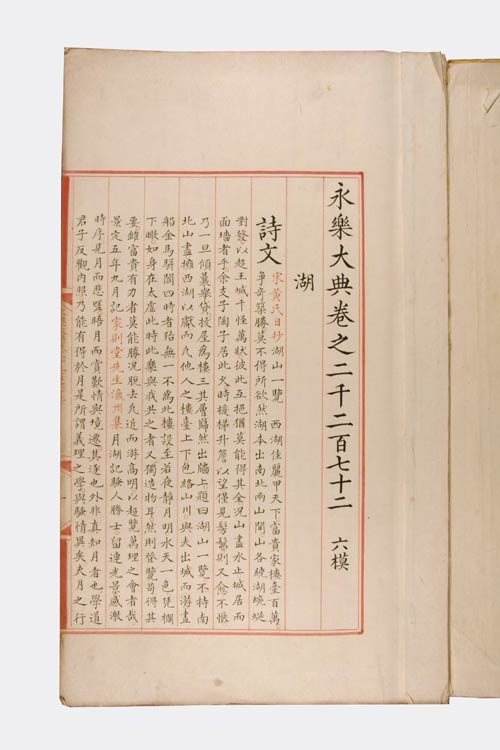 永樂大典卷之二千二百七十二 六模
湖
詩文 宋黃氏日抄湖山一覽 西湖佳麗甲天下富貴家樓臺百萬
爭奇築勝莫不得所欲然湖本出南北兩山間山各繞湖蜿蜒
對發以趨王城千怪萬狀彼此互挹猶莫能得其全况山盡水止城居而
面墻者乎余支子陶子居此乆時接梯升簷以望僅見髣髴則又愈不愜
乃一旦傾囊舉貸屋爲樓三其層巋然出牖上題曰湖山一覽不特南
北山盡擁西湖以獻而凡他人之樓臺上下包絡山川與夫出城而游畫
船金馬駢闐四時者殆無一不爲此樓設至若夜靜月明水天一色凭欄
下瞰如身在太虛此時此樂與我共之者又獨造物耳然則登覽苟得其
要雖富貴有力者莫能勝况脫去凡近而游高明以超覽萬理之會者哉
景定五年九月記家則堂先生瀛州集月湖記騷人勝士留連光景感激
時序見月而悲晤月而賞歡情與境遷其逐也外非真知月者也學道
君子反觀內照乃能有得於月是所謂義理之學與騷情異矣夫月之行